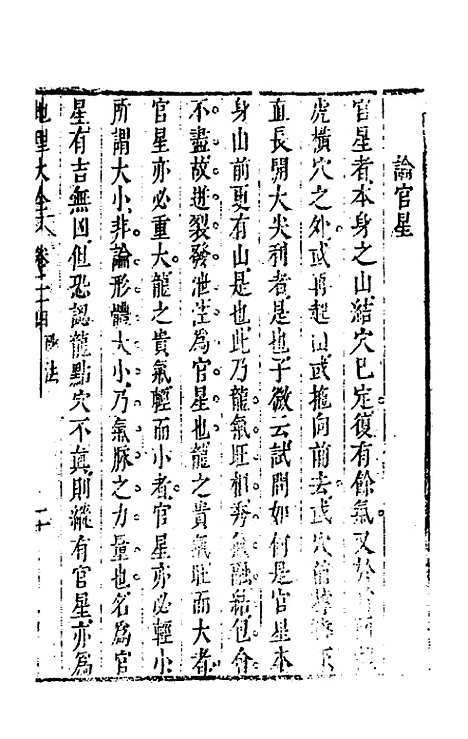 論官星
官星者本身之山結穴已定復有餘氣又於
虎橫穴之外或再起山或擁向前去或穴前
直長開大尖利者是也子微云試問如何是官星本
身山前更有山是也此乃龍氣旺相秀氣融結包含
不盡故迸裂發泄注爲官星也龍之貴氣旺而大者
官星亦必重大龍之貴氣輕而小者官星亦必輕小
所謂大小非論形體大小乃氣脉之力量也名爲官
星有吉無凶但恐認龍點穴不真則縱有官星亦爲
地理大全 卷二十四 砂法 二十